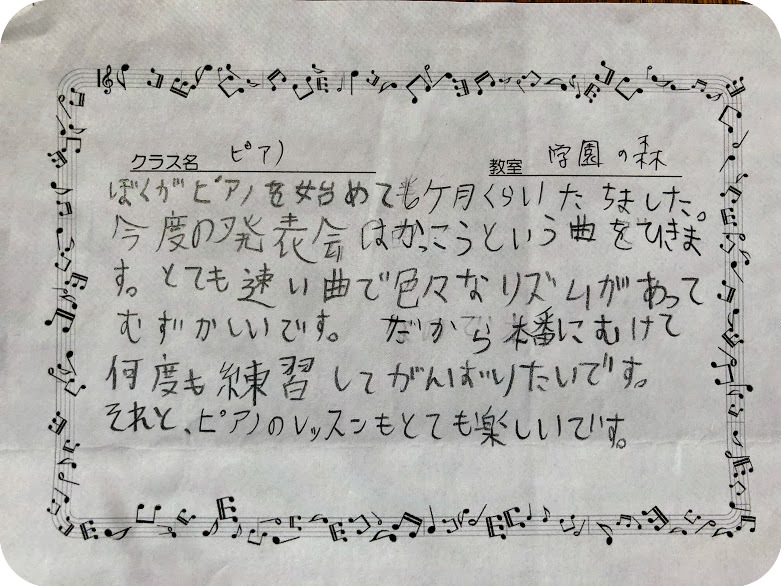 クラス名 ピアノ 教室 学園の森
ぼくがピアノを始めても ケ月くらいたちました。
今度の発表会はかっこうという曲をひきま
す。とても速い曲で色々なリズムがあって
むずかしいです。 だから本番にむけて
何度も練習してがんばりたいです。
それと、ピアノのレッスンもとても楽しいです。